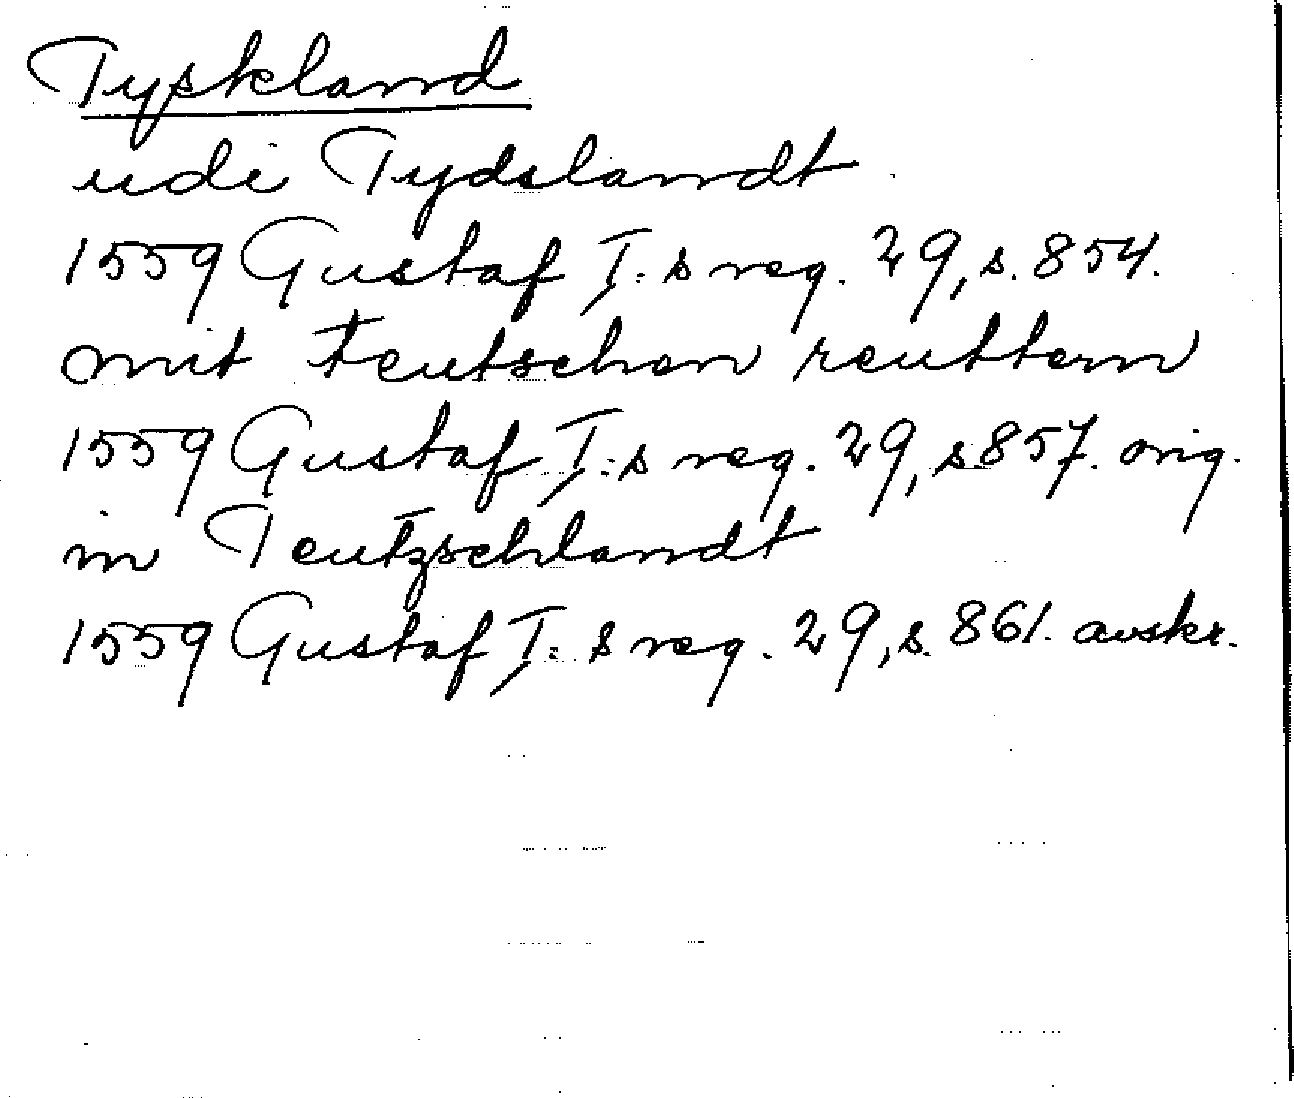 Tyskland
udi Tydslandt
1559 Gustaf I:s reg. 29, s. 854.
mit teutschen reuttern
1559 Gustaf I:s reg. 29, s 857. orig.
in Teutzschlandt
1559 Gustaf I:s reg. 29, s. 861. avskr.